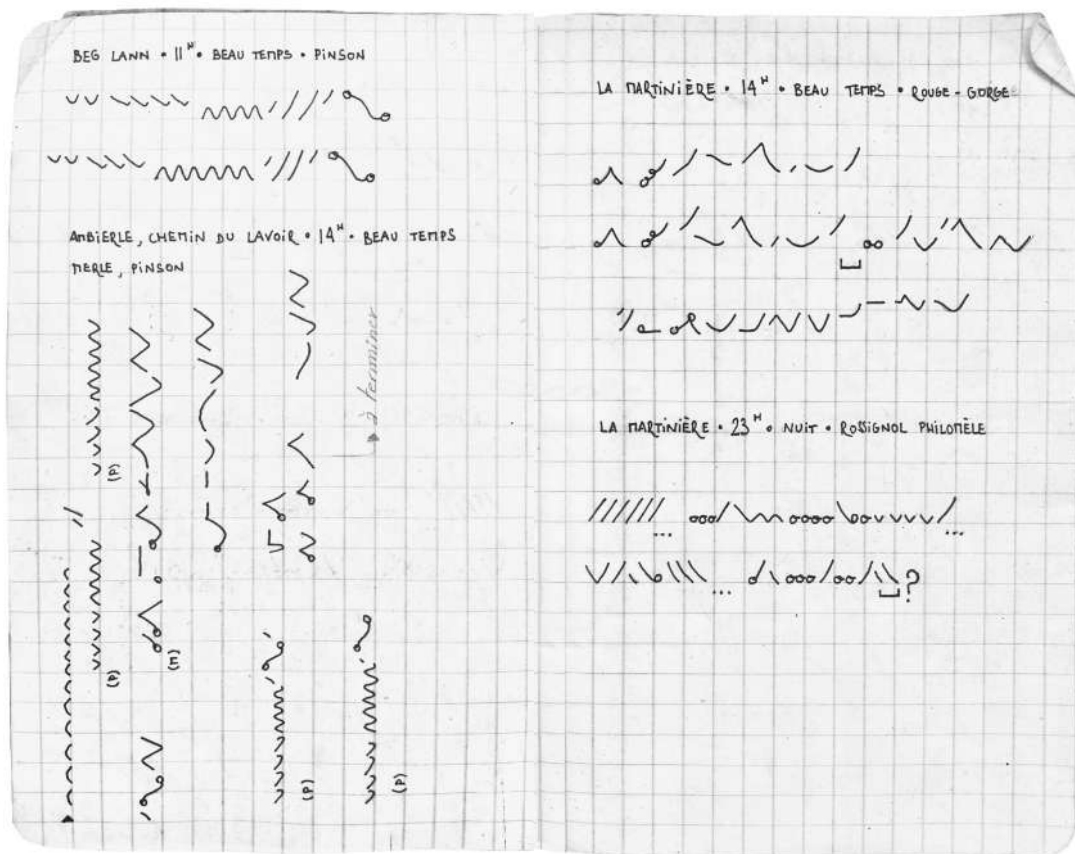 BEG LANN • 11H • BEAU TEMPS • PINSON
AMBIERLE, CHEMIN DU LAVOIR • 14H • BEAU TEMPS
MERLE, PINSON
à terminer
(P)
(M)
(P)
(P)
(P)
LA MARTINIÈRE • 14H • BEAU TEMPS • ROUGE-GORGE
LA MARTINIÈRE • 23H • NUIT • ROSSIGNOL PHILOMÈLE
...
...
...
?